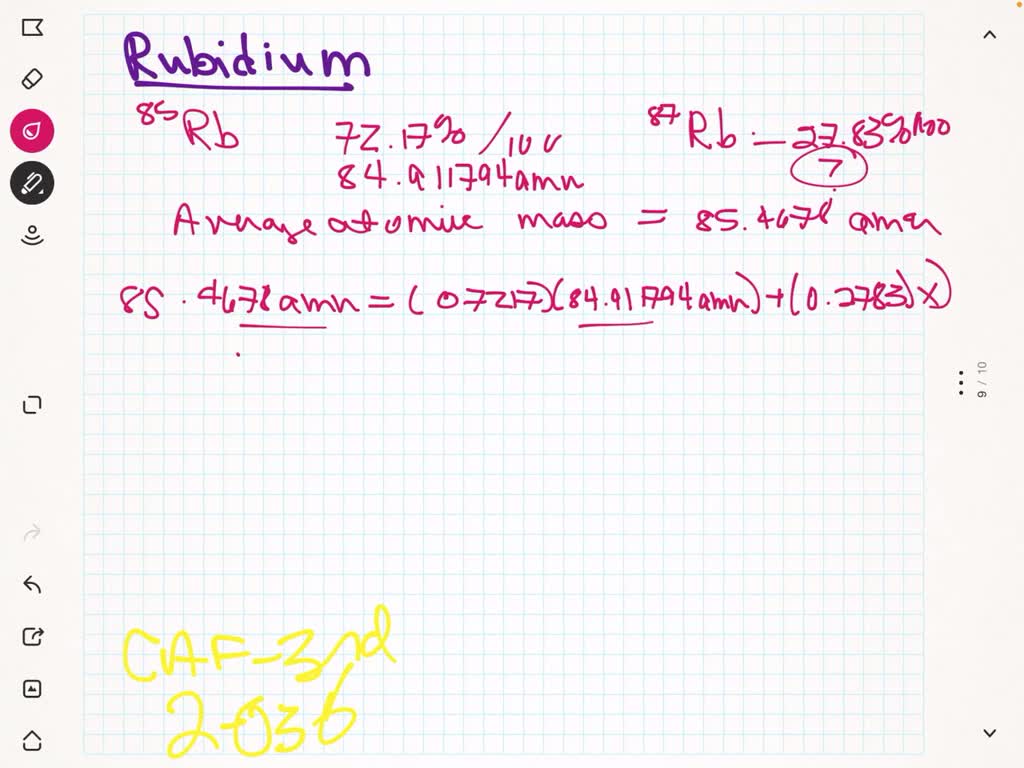 Rubidium
85Rb 72.17% /100 87Rb - 27.83% /100
84.911794amu ?
Average atomic mass = 85.4678 amu
85.4678amu = (07217)(84.911794amu) + (0.2783)x)
CAF-3rd
2-036
9 / 10